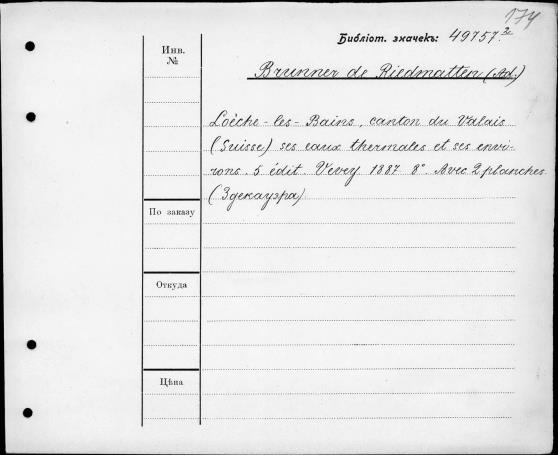 174
Библіот. значекъ: 49757.
Инв.
№
Brunner de Riedmatten (Ad.)
Loèche-les-Bains, canton du Valais
(Suisse) ses eaux thermales et ses envi-
rons. 5 édit. Vevey 1887 8°. Avec 2 planches
(Здекауэра)
По заказу
Откуда
Цѣна